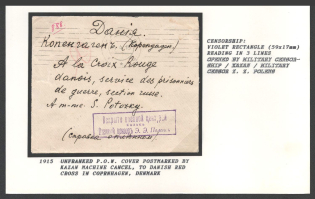 Данія.
Копенгагенъ. (Kopengagen)
A la Croix-Rouge
danois, service des prisonniers
de guerre, section russe.
A m-me. S. Potocky.
Вскрыто военной
Военный цензоръ Э. Э.
CENSORSHIP:
VIOLET RECTANGLE (59x17mm)
READING IN 3 LINES
OPENED BY MILITARY CENSOR-
SHIP / KAZAN / MILITARY
CENSOR E. E.
1915 UNFRANKED P.O.W. COVER POSTMARKED BY
KAZAN MACHINE CANCEL, TO DANISH RED
CROSS IN COPENHAGEN, DENMARK